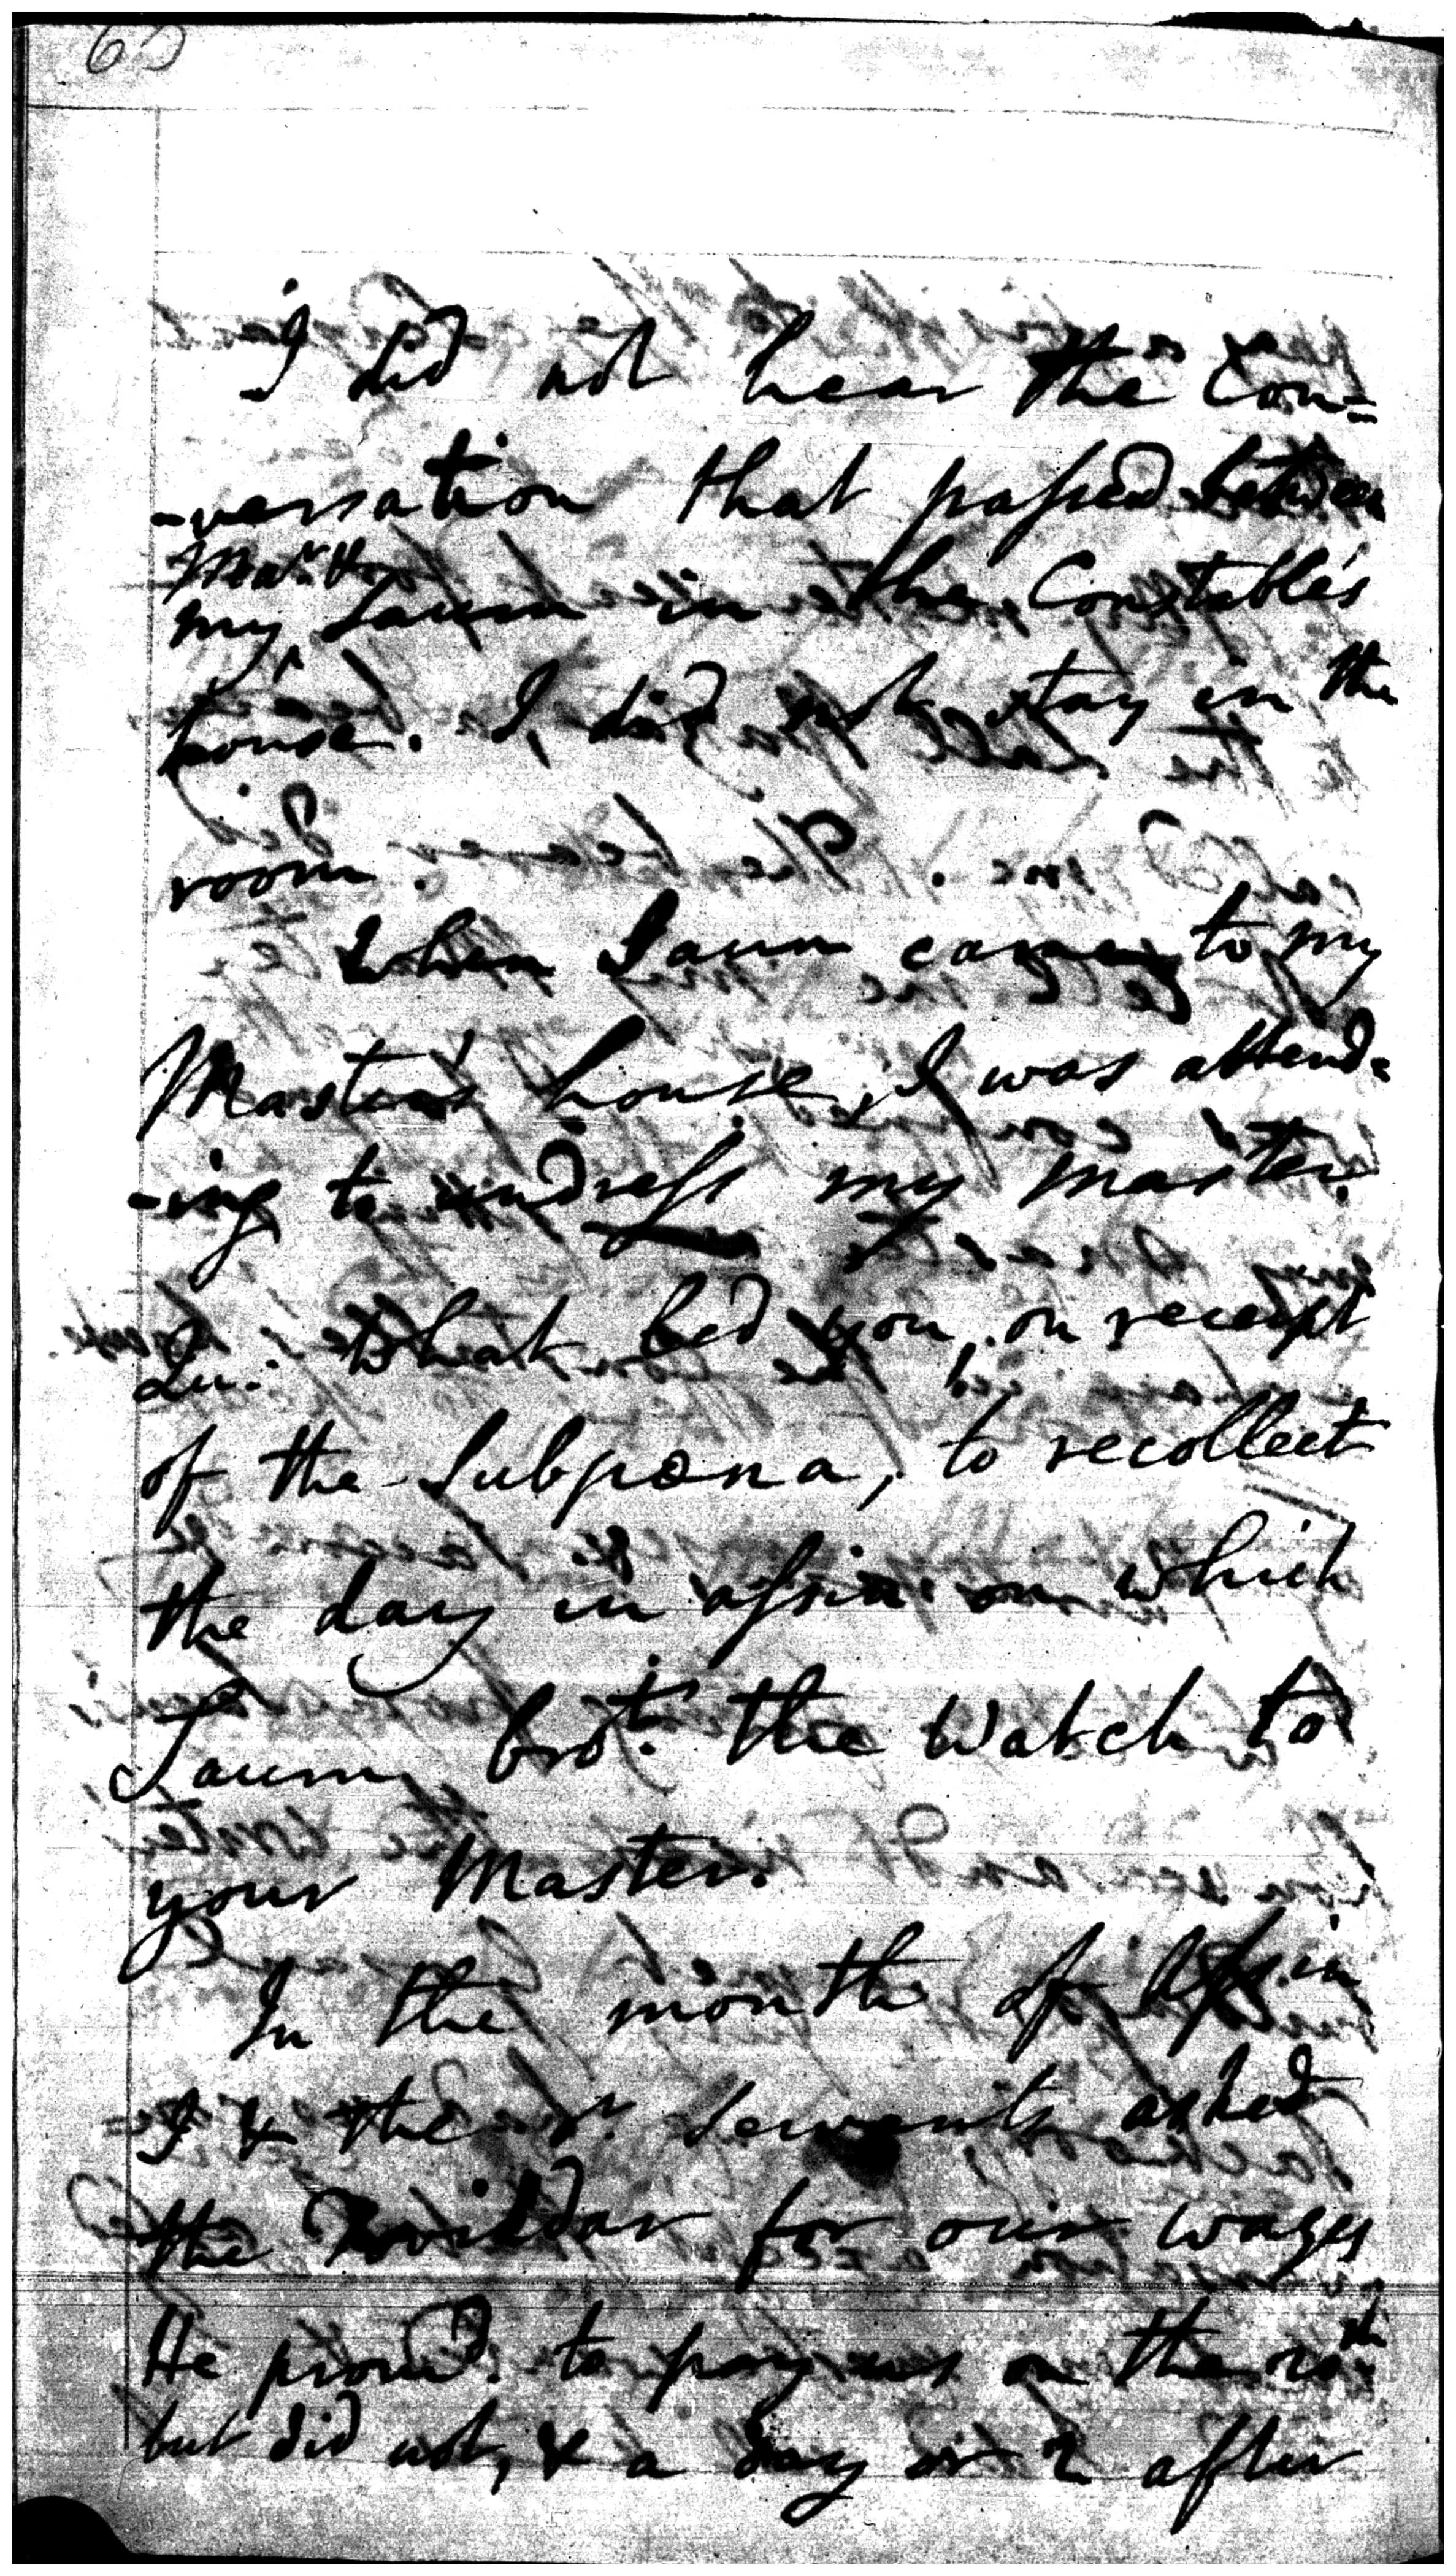 65
I did not hear the Con=
-versation that passed between
my Mar. & Saum in the Constable's
house. I, did not stay in the
room.
When Saum came to my
Master's house, I was attend=
-ing to undress my master.
Qu: What led you, on receipt
of the Subpœna, to recollect
the day in assin on which
Saum brot. the Watch to
your Master.
In the month of Assin
I & the or. servants asked
the for our wages
He promd. to pay us on the 20th
but did not, & a day or 2 after